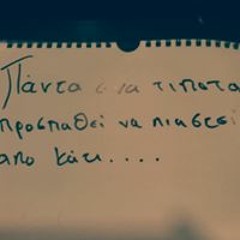 Πάντα ένα τιποτα
προσπαθεί να πιαστεί
απο κάτι....